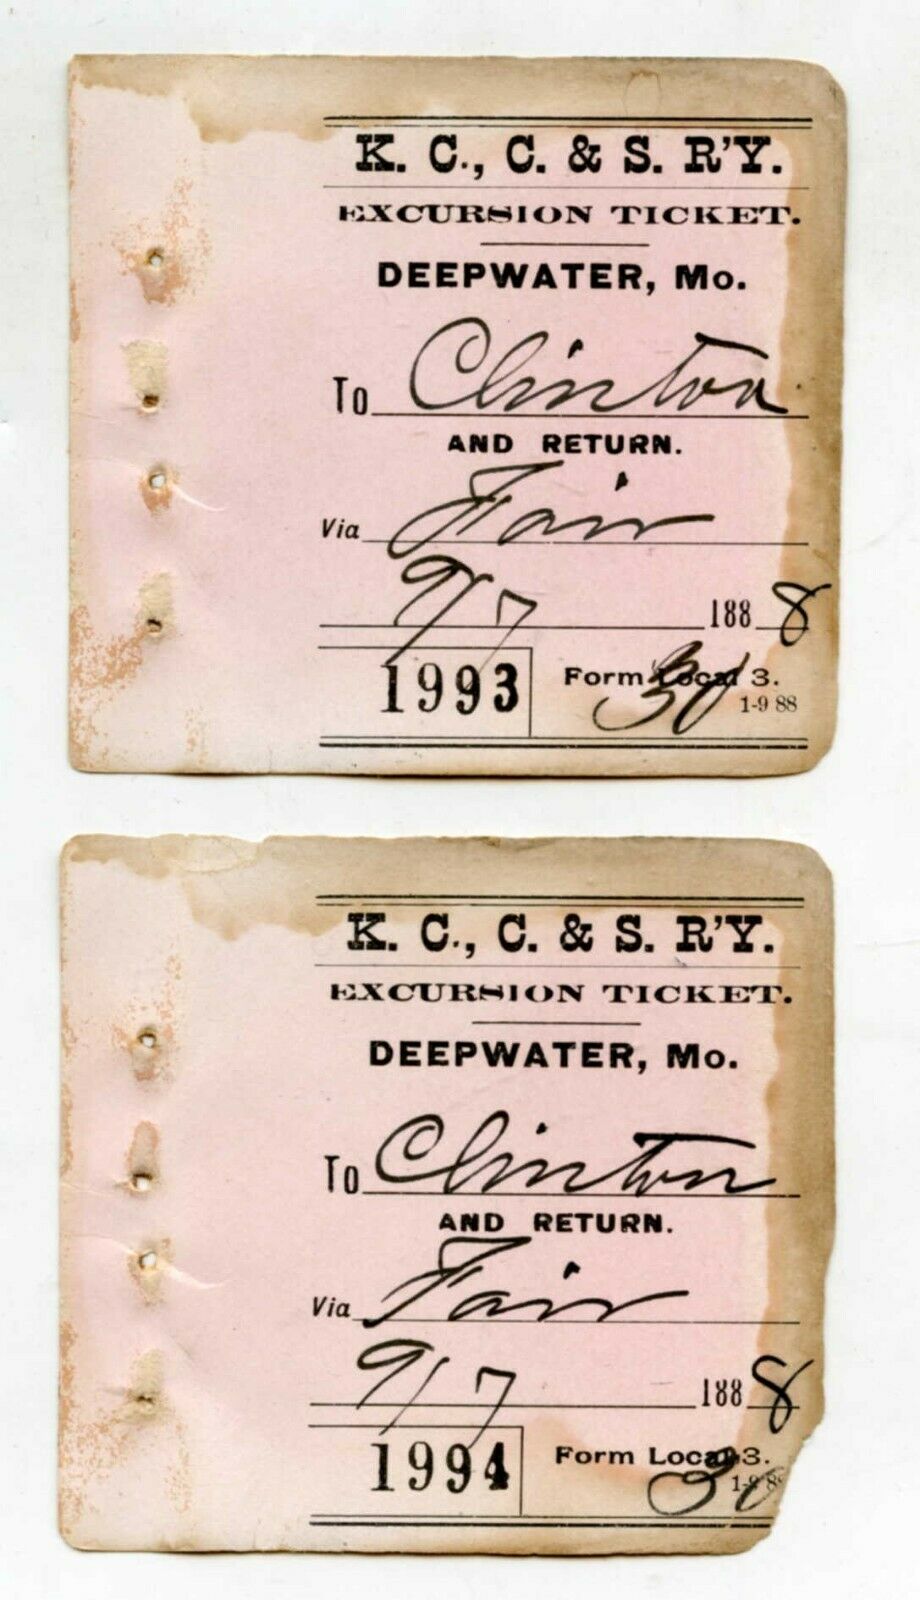 K. C., C. & S. R'Y.
EXCURSION TICKET.
DEEPWATER, Mo.
To Clinton
AND RETURN.
Via Fair
9/7 1888
1993 Form Local 3.
30 1-9 88
K. C., C. & S. R'Y.
EXCURSION TICKET.
DEEPWATER, Mo.
To Clinton
AND RETURN.
Via Fair
9/7 1888
1994 Form Local 3.
30 1-9 88